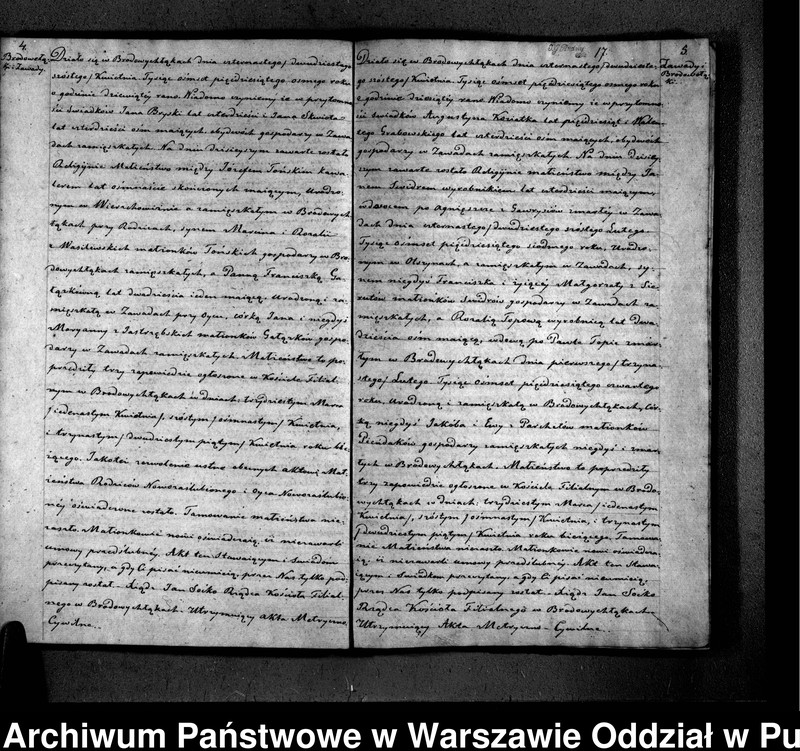 4.
Brodowełą-
ki i Zawady.
Działo się w Brodowychłąkach dnia czternastego/dwudziestego
szóstego/Kwietnia Tysiąc ośmset pięćdziesiątego osmego roku
o godzinie dziewiątej rano. Wiadomo czyniemy że w przytomno-
ści świadków Jana Bryski lat czterdzieści i Jana
lat czterdzieści ośm mających obydwóch gospodarzy w Zawa-
dach zamieszkałych. Na dniu dzisiejszym zawarte zostało
Religijne Małżeństwo między Józefem Tońskim kawa-
lerem lat ośmnaście skończonych mającym, urodzo-
nym w a zamieszkałym w Brodowych
łąkach przy Rodzicach, synem Macieja i Rozalii
z Wasilewskich małżonków Tońskich gospodarzy w Bro-
dowychłąkach zamieszkałych, a Panną Franciszką Ga-
łązkówną lat dwadzieścia ieden mającą, urodzoną i za-
mieszkałą w Zawadach przy Oycu, córką Jana i niegdyś
Maryanny z Jastrzębskich małżonków Gałązków gospo-
darzy w Zawadach zamieszkałych. Małżeństwo to po-
przedziły trzy zapowiedzie ogłoszone w Kościele Filial-
nym w Brodowychłąkach w dniach: trzydziestym Marca
/iedenastym Kwietnia/, szóstym/ośmnastym/Kwietnia,
i trzynastym/dwudziestym piątym/Kwietnia roku bie-
żącego. Jakoteż zezwolenie ustne obecnych aktowi Mał-
żeństwa Rodziców Nowozaślubionego i Oyca Nowozaślubio-
néj oświadczone zostało. Tamowanie małżeństwa nie
zaszło. Małżonkowie nowi oświadczają, iż niezawarli
umowy przedślubnéj. Akt ten Stawaiącym i świadkom
przeczytany, a gdy ci pisać nieumieią, przez Nas tylko pod-
pisany został. Xiądz Jan Soćko Rządca Kościoła Filial-
nego w Brodowychłąkach Utrzymujący Akta Metryczno
Cywilne.
17.
5
Zawady i
Brodowełą-
ki.
Działo się w Brodowychłąkach dnia czternastego/dwudzieste-
go szóstego/Kwietnia Tysiąc ośmset pięćdziesiątego osmego roku
o godzinie dziesiątej rano. Wiadomo czyniemy że w przytomno-
ści świadków Augustyna lat pięćdziesiąt i
Grabowskiego lat czterdzieści ośm mających, obydwóch
gospodarzy w Zawadach zamieszkałych. Na dniu dzisiej-
szym zawarte zostało Religijne małżeństwo między Ja-
nem Świdrem wyrobnikiem lat czterdzieści mającym
wdowcem po Agnieszce z Gawrysiów zmarłej w Zawa-
dach dnia czternastego/dwudziestego szóstego Lutego
Tysiąc Ośmset pięćdziesiątego siódmego roku, urodzo-
nym w Olszynach a zamieszkałym w Zawadach, sy-
nem niegdyś Franciszka i żyjącej Małgorzaty z
małżonków Świdrów gospodarzy w Zawadach za-
mieszkałych, a Rozalią Topową wyrobnicą lat dwa-
dzieścia ośm mającą, wdową po Pawle Topie zmar-
łym w Brodowychłąkach dnia pierwszego/trzyna-
stego/Lutego Tysiąc Ośmset pięćdziesiątego czwartego
roku, urodzoną i zamieszkałą w Brodowychłąkach, cór-
ką niegdyś Jakóba i Ewy z Parchełów małżonków
gospodarzy zamieszkałych niegdyś i zmar-
łych w Brodowychłąkach. Małżeństwo to poprzedziły
trzy zapowiedzie ogłoszone w Kościele Filialnym w Brodo-
wychłąkach w dniach: trzydziestym Marca/iedenastym
Kwietnia/, szóstym/ośmnastym/Kwietnia, i trzynastym
/dwudziestym piątym/Kwietnia roku bieżącego. Tamowa-
nie Małżeństwa niezaszło. Małżonkowie nowi oświadcza-
ją, iż niezawarli umowy przedślubnéj. Akt ten Stawa-
iącym i świadkom przeczytany, a gdy ci pisać nieumieią,
przez Nas tylko podpisany został. Xiądz Jan Soćko
Rządca Kościoła Filialnego w Brodowychłąkach
Utrzymujący Akta Metryczno-Cywilne.
Archiwum Państwowe w Warszawie Oddział w Pu